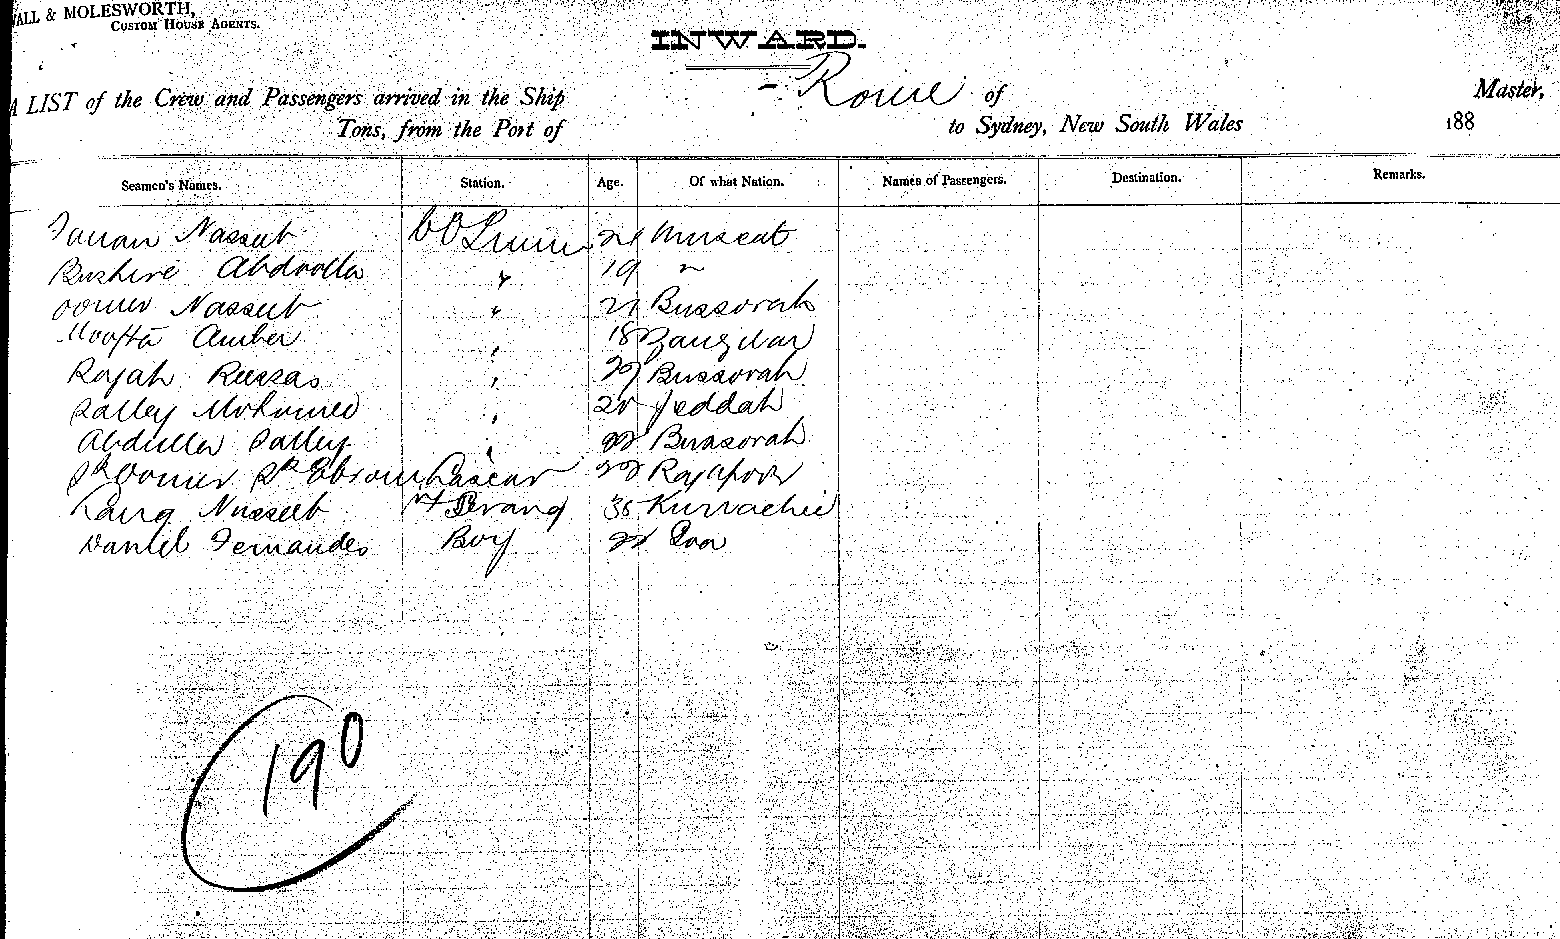 WALL & MOLESWORTH,
CUSTOM HOUSE AGENTS.
INWARD.
A LIST of the Crew and Passengers arrived in the Ship Rome of Master,
Tons, from the Port of to Sydney, New South Wales 188
Seamen's Names. Station. Age. Of what Nation. Names of Passengers. Destination. Remarks.
Nasseeb 21 Muscat
Bushire Abdoolla " 19 "
Oomer Nasseeb " 21 Bussorah
Moofta Amber " 18 Zanzibar
Rajah " Bussorah
Salley Mohamed " 20 Jeddah
Abdulla Salley " 22 Bussorah
Oomer Ebram Lascar 22 Rajapoor
Nusseeb Serang 35 Kurrachee
Daniel Fernandes Boy 22 Goa
190